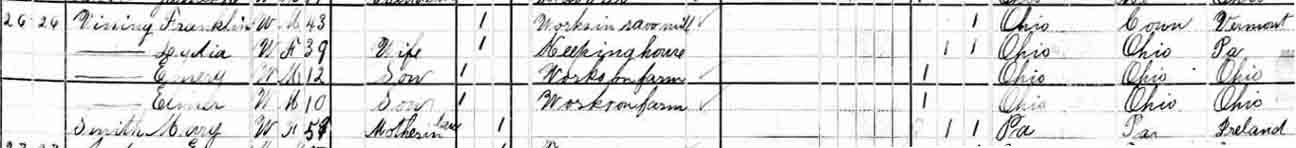 26 26 Vining Franklin W M 43 1 Works in saw mill 1 Ohio Conn Vermont
—— Lydia W F 39 Wife 1 Keeping house 1 1 Ohio Ohio Pa
—— Emery W M 12 Son 1 Works on farm 1 Ohio Ohio Ohio
—— Elmer W M 10 Son 1 Works on farm 1 Ohio Ohio Ohio
Smith Mary W F Mother in law 1 1 1 Pa Pa Ireland